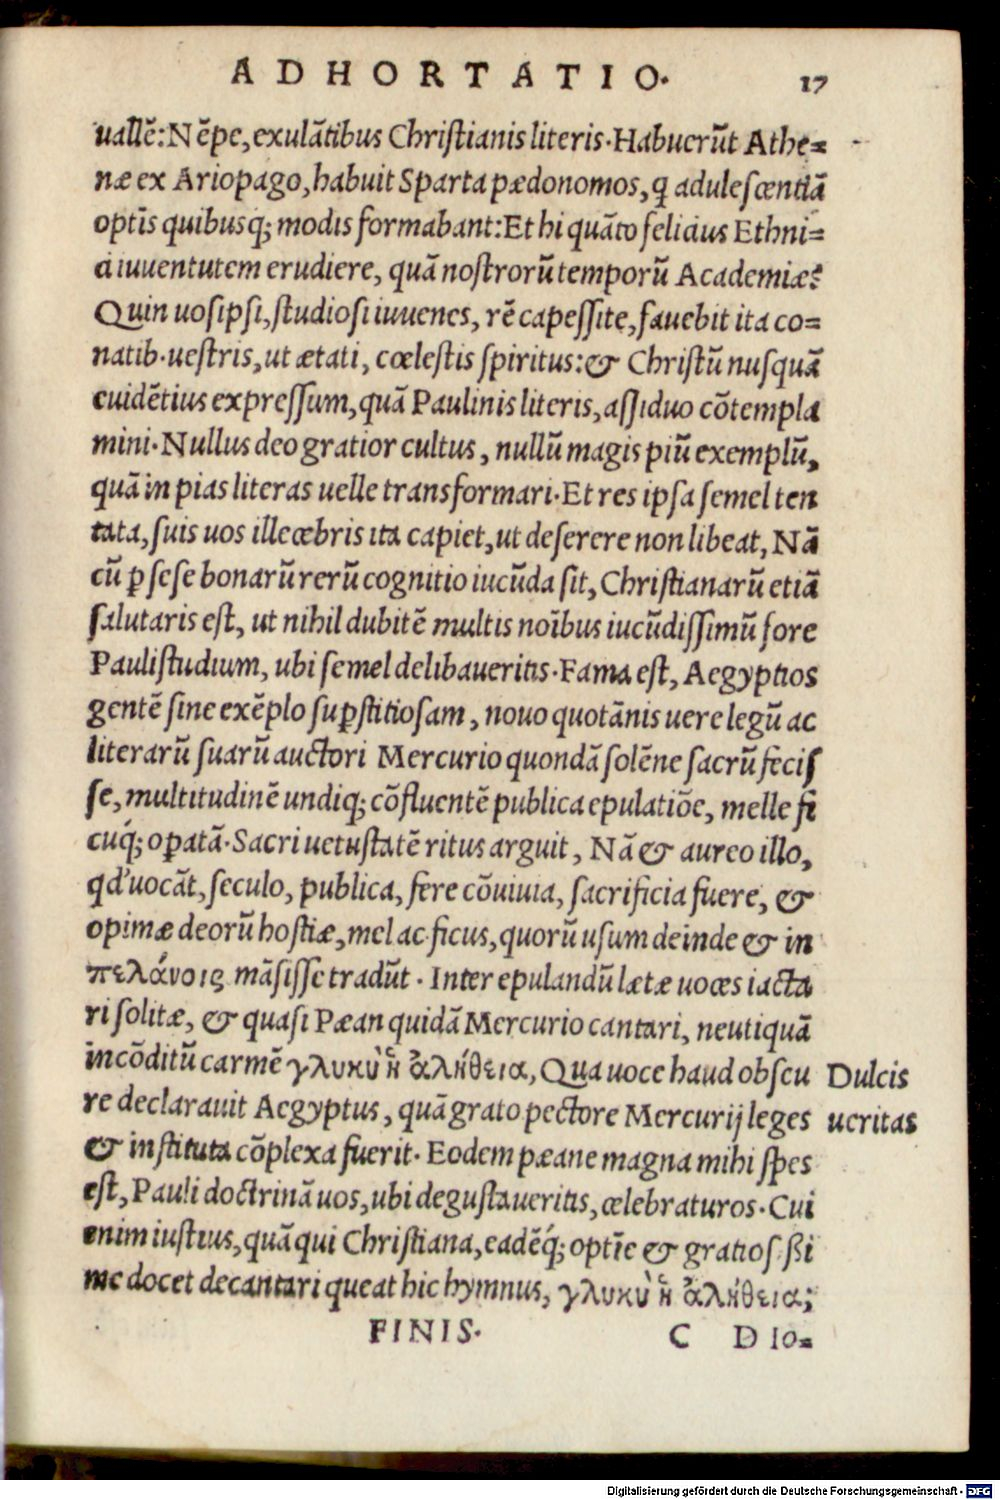 ADHORTATIO. 17
uallē: Nēpe, exulātibus Christianis literis. Habuerūt Athe=
næ ex Ariopago, habuit Sparta pædonomos, q̨ adulescentiā
optīs quibusq; modis formabant: Et hi quāto felicius Ethni=
ci iuuentutem erudiere, quā nostrorū temporū Academiæ?
Quin uosipsi, studiosi iuuenes, rē capessite, fauebit ita co=
natib. uestris, ut ætati, cœlestis spiritus: & Christū nusquā
euidētius expressum, quā Paulinis literis, assiduo cōtempla
mini. Nullus deo gratior cultus, nullū magis piū exemplū,
quā in pias literas uelle transformari. Et res ipsa semel ten
tata, suis uos illecebris ita capiet, ut deserere non libeat, Nā
cū ꝑ sese bonarū rerū cognitio iucūda sit, Christianarū etiā
salutaris est, ut nihil dubitē multis noībus iucūdissimū fore
Pauli studium, ubi semel delibaueritis. Fama est, Aegyptios
gentē sine exēplo suꝑstitiosam, nouo quotānis uere legū ac
literarū suarū auctori Mercurio quondā solēne sacrū fecis
se, multitudinē undiq; cōfluentē publica epulatiōe, melle fi
cuq́; oꝑatā. Sacri uetustatē ritus arguit, Nā & aureo illo,
qd' uocāt, seculo, publica, fere cōuiuia, sacrificia fuere, &
opimæ deorū hostiæ, mel ac ficus, quorū usum deinde & in
πελάνοις māsisse tradūt. Inter epulandū lætæ uoces iacta
ri solitæ, & quasi Pæan quidā Mercurio cantari, neutiquā
incōditū carmē γλυκὺ ἡ ἀλήθεια, Qua uoce haud obscu
re declarauit Aegyptus, quā grato pectore Mercurij leges
& instituta cōplexa fuerit. Eodem pæane magna mihi spes
est, Pauli doctrinā uos, ubi degustaueritis, celebraturos. Cui
enim iustius, quā qui Christiana, eadēq́; optīe & gratiosißi
me docet decantari queat hic hymnus, γλυκὺ ἡ ἀλήθεια;
FINIS.
C D IO=
Dulcis
ueritas
Digitalisierung gefördert durch die Deutsche Forschungsgemeinschaft - DFG